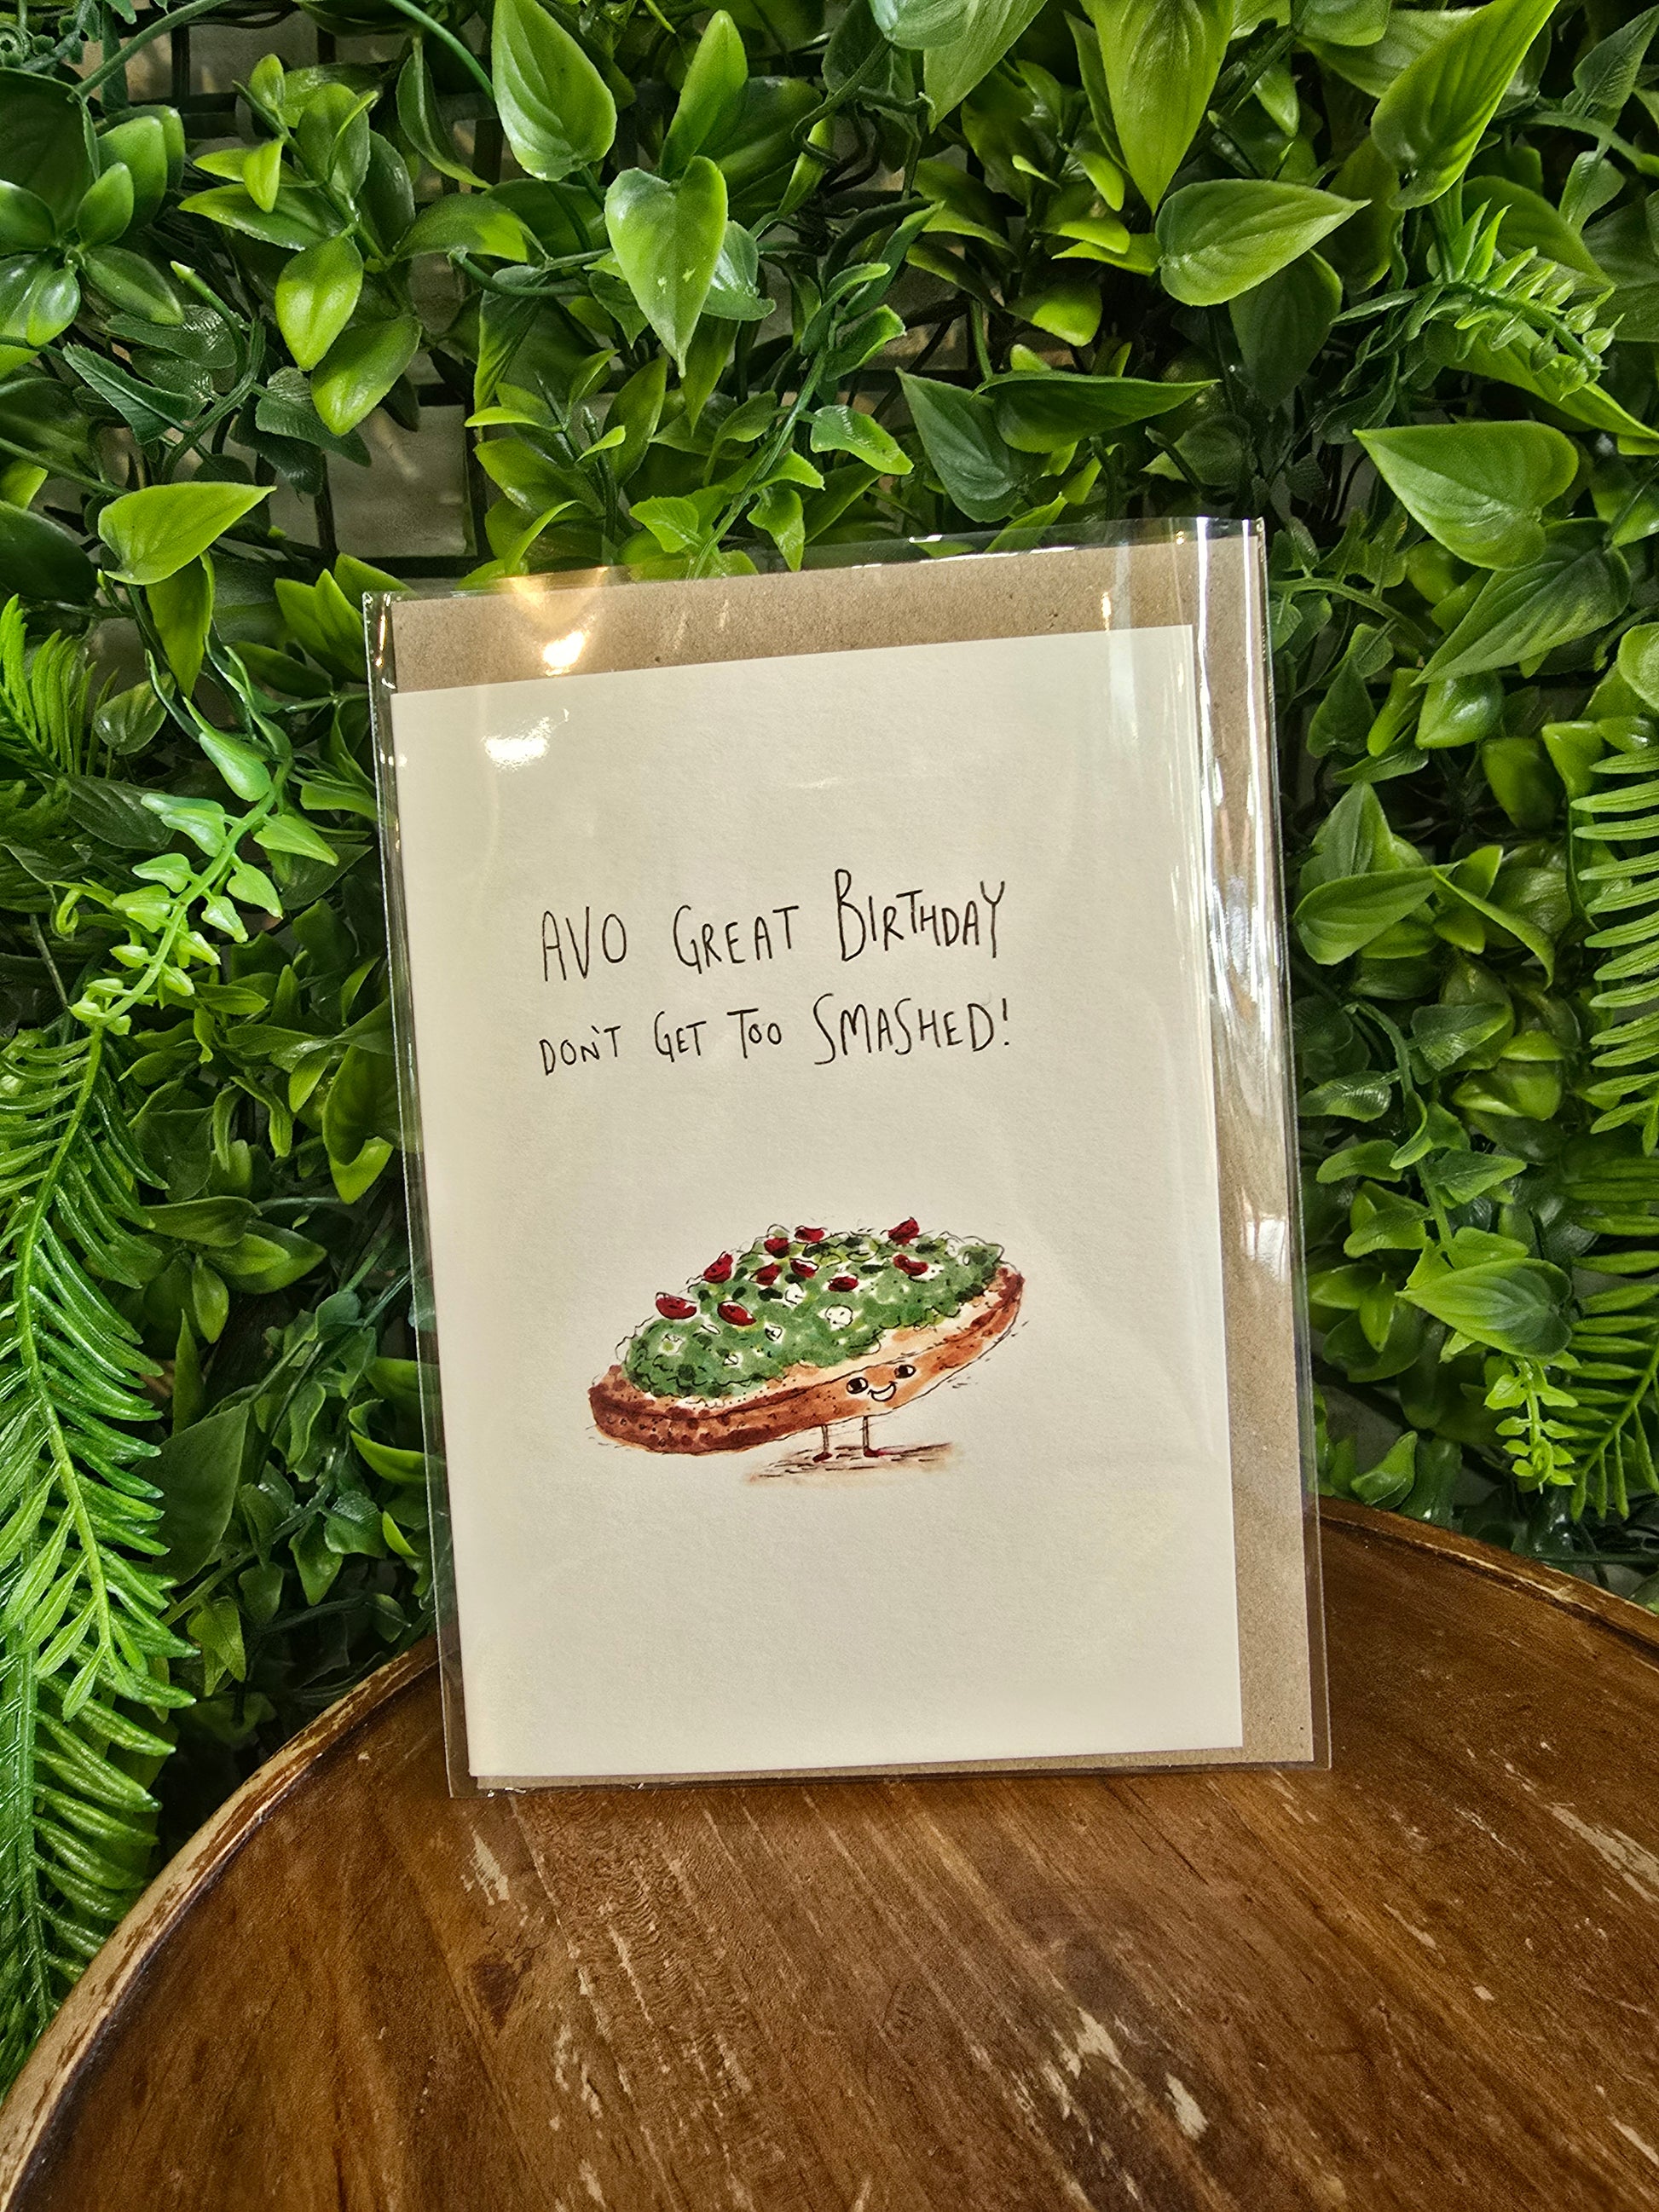 AVO GREAT BIRTHDAY
DON'T GET TOO SMASHED!